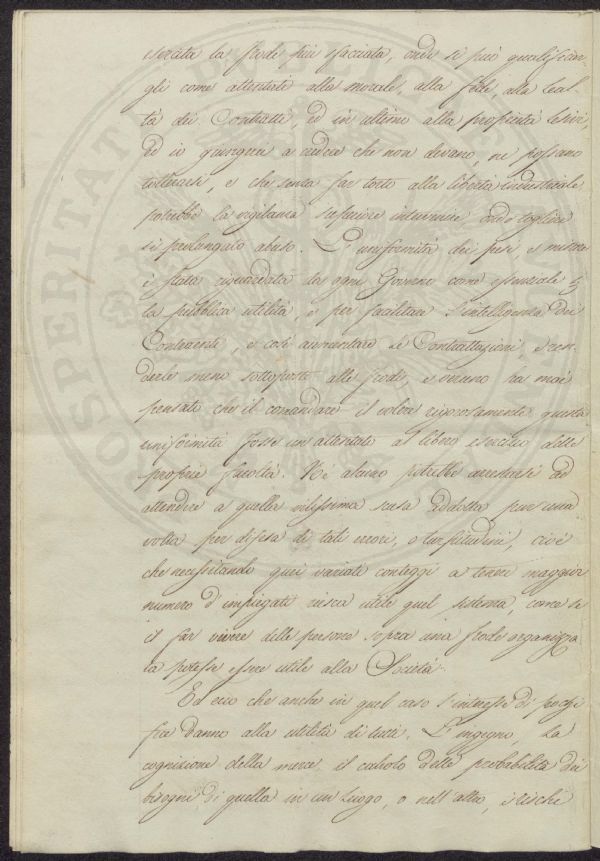 esercita la frode più sfacciata, onde si può qualificar-
gli come attentati alla morale, alla fede, alla leal-
tà dei Contratti, ed in ultimo alla proprietà lesivi,
ed io giungerei a credere che non devano, ne possano
tollerarsi, e che senza far torto alla libertà industriale
potrebbe la vigilanza superiore intervenire, onde togliere
sì prolungato abuso. L'uniformità dei pesi e misure
è stata riguardata da ogni Governo come essenziale
la pubblica utilità, e per facilitare l'intelligenza dei
Contraenti, e così aumentare le Contrattazioni, e ren-
derle meno sottoposte alle frodi, e veruno ha mai
pensato che il comandare, il volere rigorosamente questa
uniformità fosse un attentato al libero esercizio delle
proprie facoltà. Nè alcuno potrebbe arrestarsi ad
attendere a quella vilissima scusa addotta pur una
volta per difesa di tali errori, o turpitudini, cioè
che necessitando quei variati conteggi a tenere maggior
numero d'impiegati riesca utile quel sistema, come se
il far vivere delle persone sopra una frode organizza-
ta potesse essere utile alla Società.
Ed ecco che anche in quel caso l'interesse di pochi
fece danno alla utilità di tutti. L'ingegno, la
cognizione della merce, il calcolo delle probabilità dei
bisogni di quella in un luogo, o nell'altro, i rischi